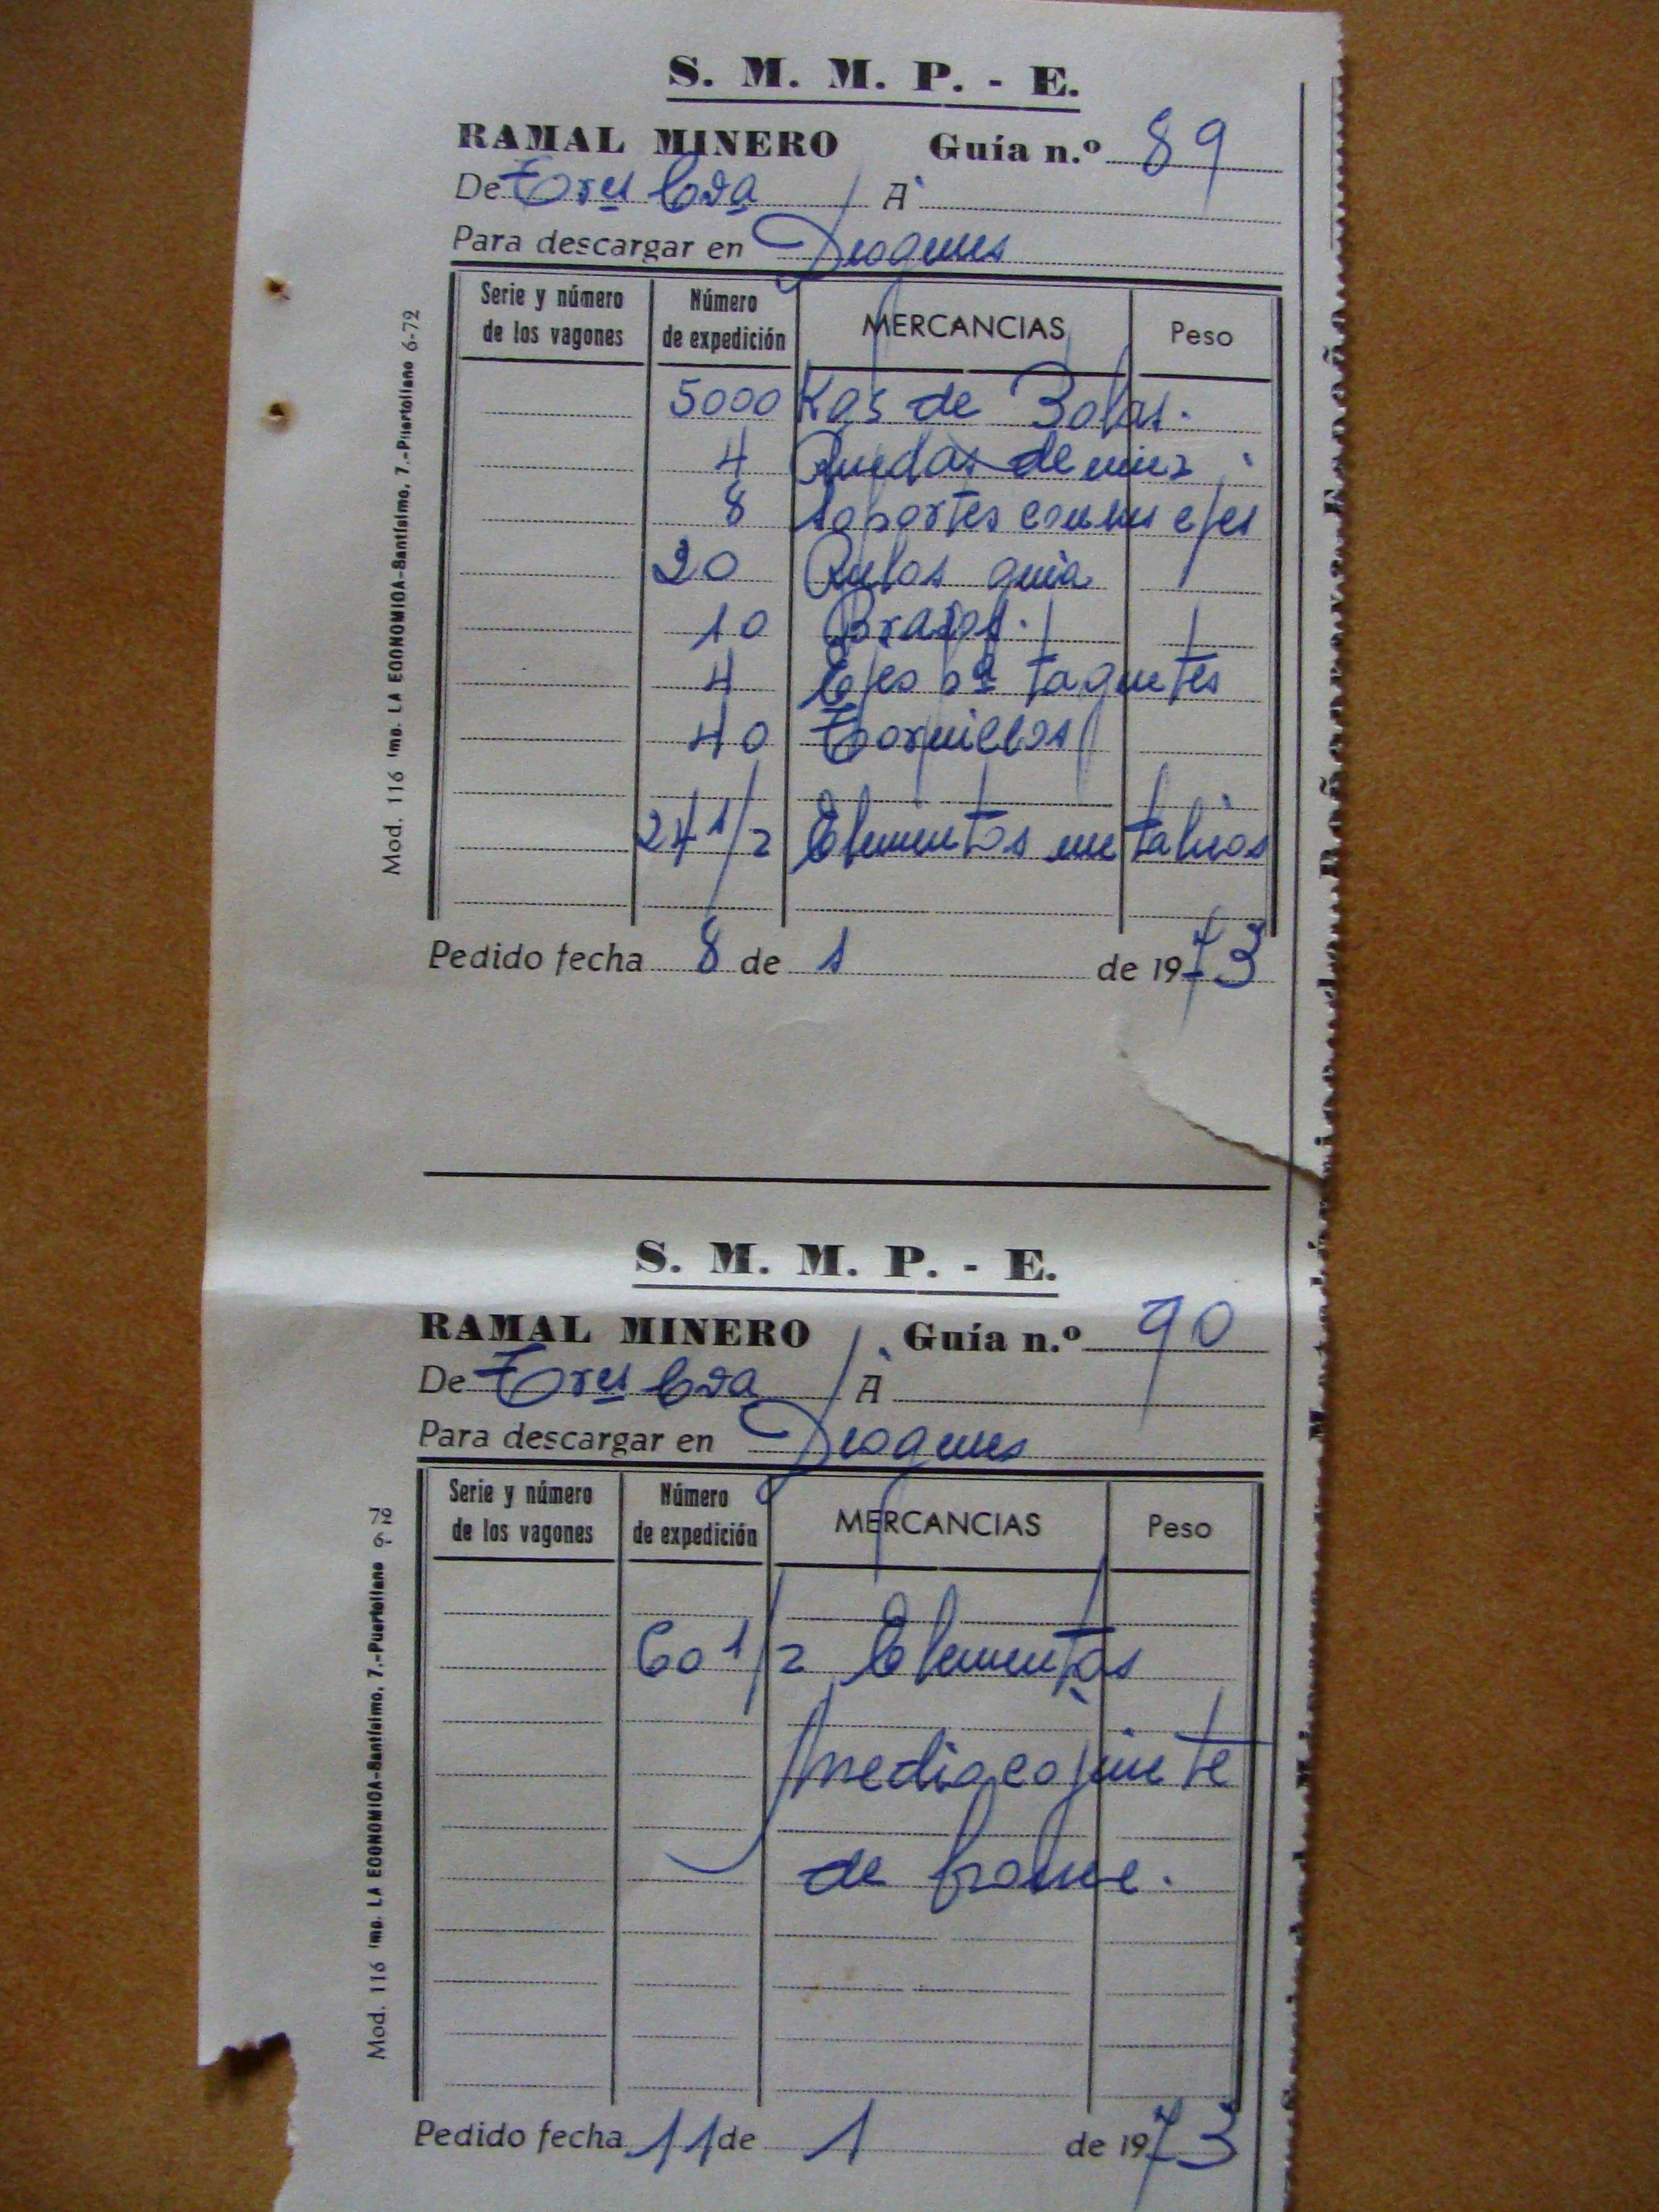 S. M. M. P. - E.
RAMAL MINERO Guía n.º 89
De A
Para descargar en Diogenes
Serie y número de los vagones Número de expedición MERCANCIAS Peso
5000 Kgs de Bolas.
4 Ruedas de
8 soportes con sus ejes
20 Rulos guia
10 Brazos.
4 Ejes pª taquetes
40 Tornillos
24 1/2 Elementos metalicos
Pedido fecha 8 de 1 de 1973
Mod. 116 Imp. LA ECONOMICA-Santísimo, 7.-Puertollano 6-72
S. M. M. P. - E.
RAMAL MINERO Guía n.º 90
De A
Para descargar en Diogenes
Serie y número de los vagones Número de expedición MERCANCIAS Peso
60 1/2 Elementos
medio cojinete
de bronce.
Pedido fecha 11 de 1 de 1973
Mod. 116 Imp. LA ECONOMICA-Santísimo, 7.-Puertollano 6-72